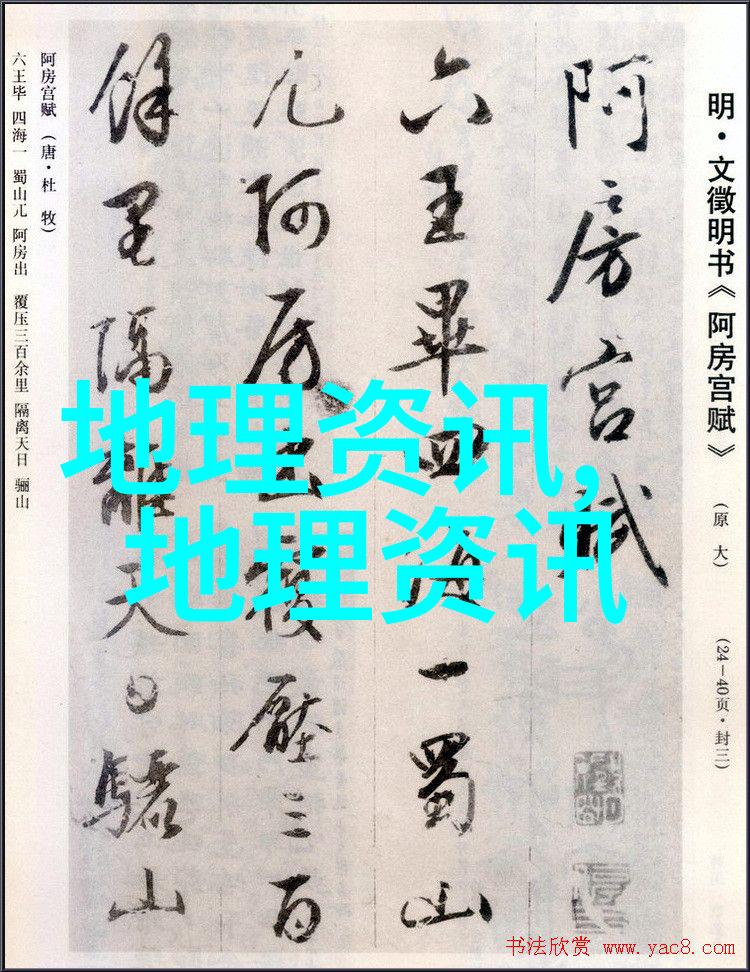 明·文徵明书《阿房宫赋》（原大）（24—40页·封三）
阿房宫賦
六王畢四海一蜀山
兀阿房出覆壓三百
餘里隔離天日驪山
阿房宫赋（唐·杜 牧）
六王毕 四海一 蜀山兀 阿房出 覆压三百余里 隔离天日 骊山
地理资讯,
地理资讯
书法欣赏 www.yac8.com